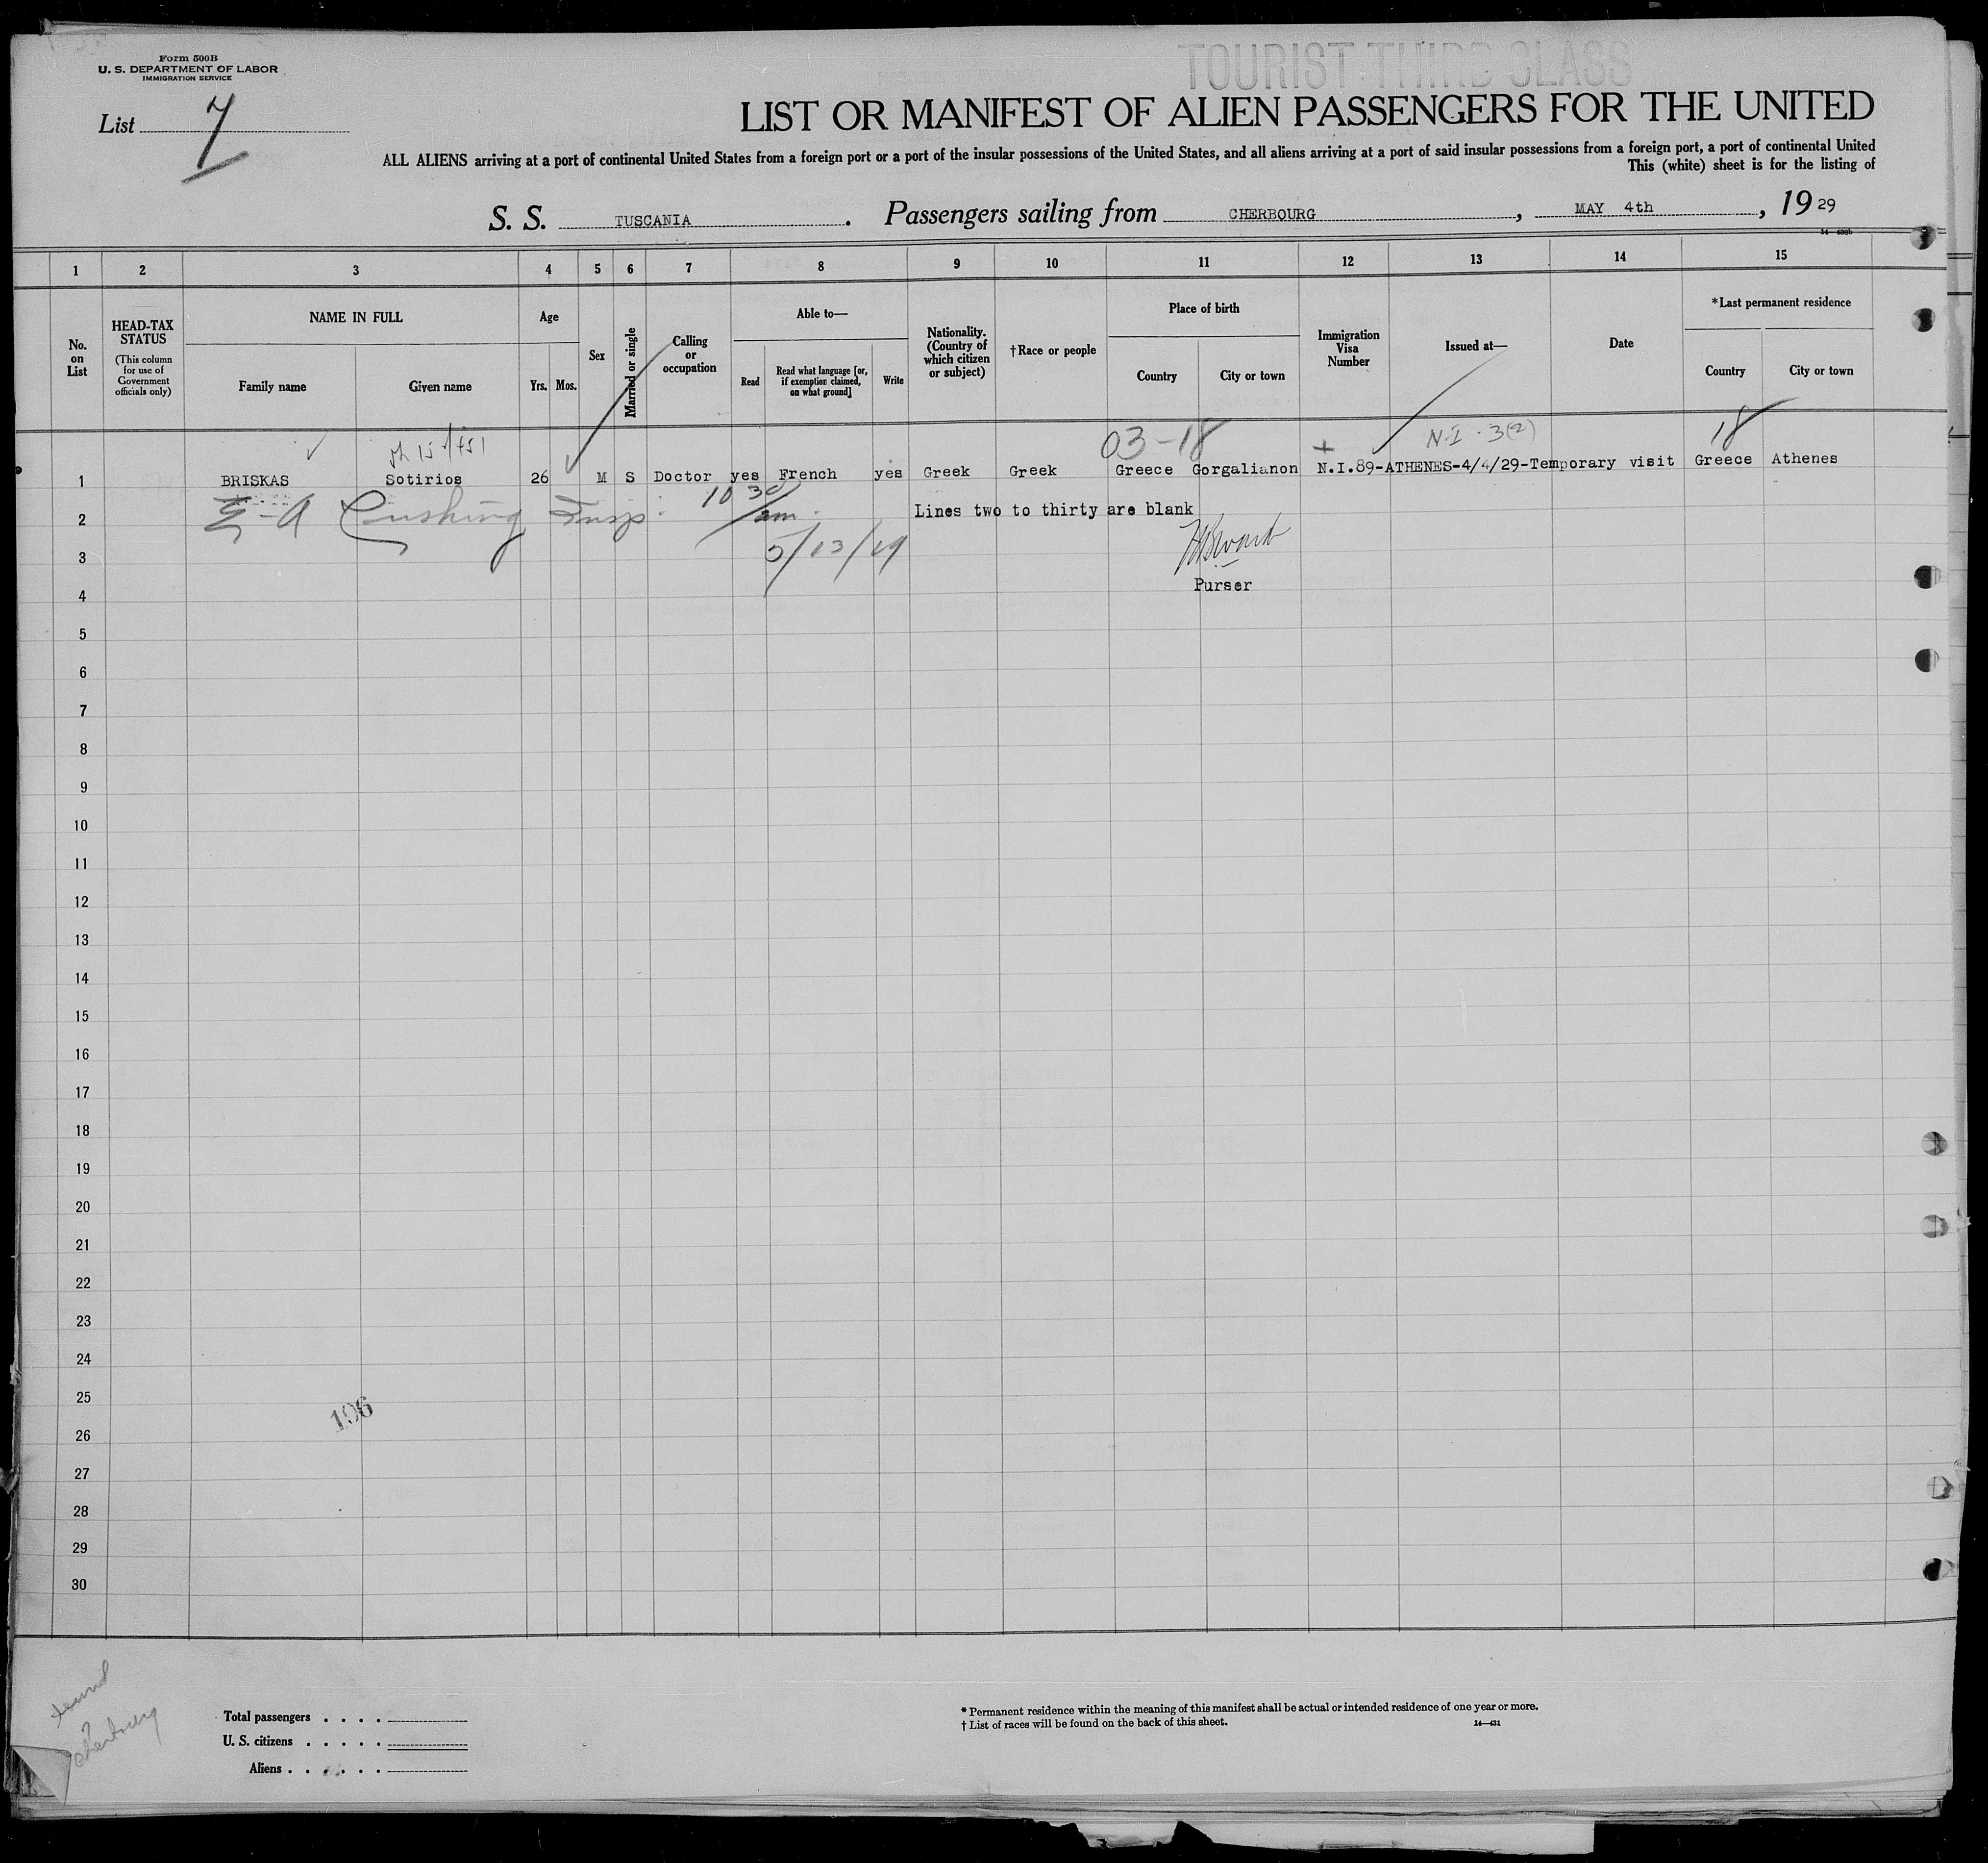 TOURIST THIRD CLASS
Form 500B
U. S. DEPARTMENT OF LABOR
IMMIGRATION SERVICE
List 7
LIST OR MANIFEST OF ALIEN PASSENGERS FOR THE UNITED
ALL ALIENS arriving at a port of continental United States from a foreign port or a port of the insular possessions of the United States, and all aliens arriving at a port of said insular possessions from a foreign port, a port of continental United
This (white) sheet is for the listing of
S. S. TUSCANIA. Passengers sailing from CHERBOURG, MAY 4th, 1929
1 2 3 4 5 6 7 8 9 10 11 12 13 14 15
No. on List
HEAD-TAX STATUS
(This column for use of Government officials only)
NAME IN FULL
Family name Given name
Age
Yrs. Mos.
Sex
Married or single
Calling or occupation
Able to—
Read
Read what language [or, if exemption claimed, on what ground]
Write
Nationality. (Country of which citizen or subject)
†Race or people
Place of birth
Country City or town
Immigration Visa Number
Issued at—
Date
*Last permanent residence
Country City or town
03-18 N.I. 3(2) 18
1 BRISKAS Sotirios 26 M S Doctor yes French yes Greek Greek Greece Gorgalianon N.I.89-ATHENES-4/4/29-Temporary visit Greece Athenes
2 Cushing Insp. 10 30 am. Lines two to thirty are blank
3 5/13/29
4 Purser
5
6
7
8
9
10
11
12
13
14
15
16
17
18
19
20
21
22
23
24
25
196
26
27
28
29
30
Total passengers . . . .
U. S. citizens . . . . .
Aliens . . . . . .
* Permanent residence within the meaning of this manifest shall be actual or intended residence of one year or more.
† List of races will be found on the back of this sheet.